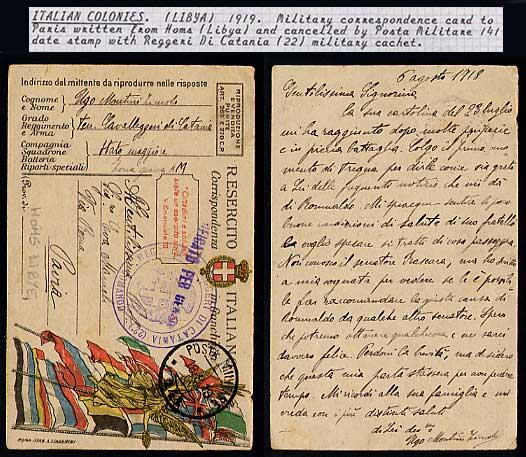 ITALIAN COLONIES. (LIBYA) 1919. Military correspondence card to
Paris written from Homs (Libya) and cancelled by Posta Militare 141
date stamp with Reggeri Di Catania (22) military cachet.
Indirizzo del mittente da riprodurre nelle risposte
Cognome e Nome Ugo Montini
Grado
Reggimento o Arma Ten. Cavalleggeri di Catania
Compagnia
Squadrone
Batteria
Riparti speciali
Stato maggiore
zona guerra
RIPRODUZIONE
E VENDITA
PUNITE
ART. 285 E 270 C.P.
R. ESERCITO ITALIANO
Corrispondenza in franchigia
"Cittadini e soldati,
siate un esercito solo!"
V. Emanuele III
VERIFICATO PER CENSURA
DI CATANIA (22°)
COMANDO
POSTA MILITARE
HOMS LIBYE
Alla
Gentilissima
Via Roma
ROMA-STAB. A. STADERINI
6 agosto 1918
Gentilissima Signorina
la sua cartolina del 23 luglio
mi ha raggiunto dopo molte peripezie
e in piena battaglia. Colgo il primo mo-
mento di tregua per dirle come sia grato
a Lei delle frequenti notizie che mi dà
di Romualdo. Mi spiace sentire le poco
buone condizioni di salute di suo fratello
e voglio sperare si tratti di cosa passeggera.
Non conosco il senatore Frascara, ma ho scritto
a mia cognata per vedere se le è possibile
far raccomandare la giusta causa di
Romualdo da qualche altro senatore. Spero
che potremo ottenere qualchecosa e ne sarei
davvero felice. Perdoni la busta, ma desidero
che questa mia parta stassera per non perdere
tempo. Mi ricordi alla sua famiglia e mi
creda con i più distinti saluti
di Lei dev.
Ugo Montini